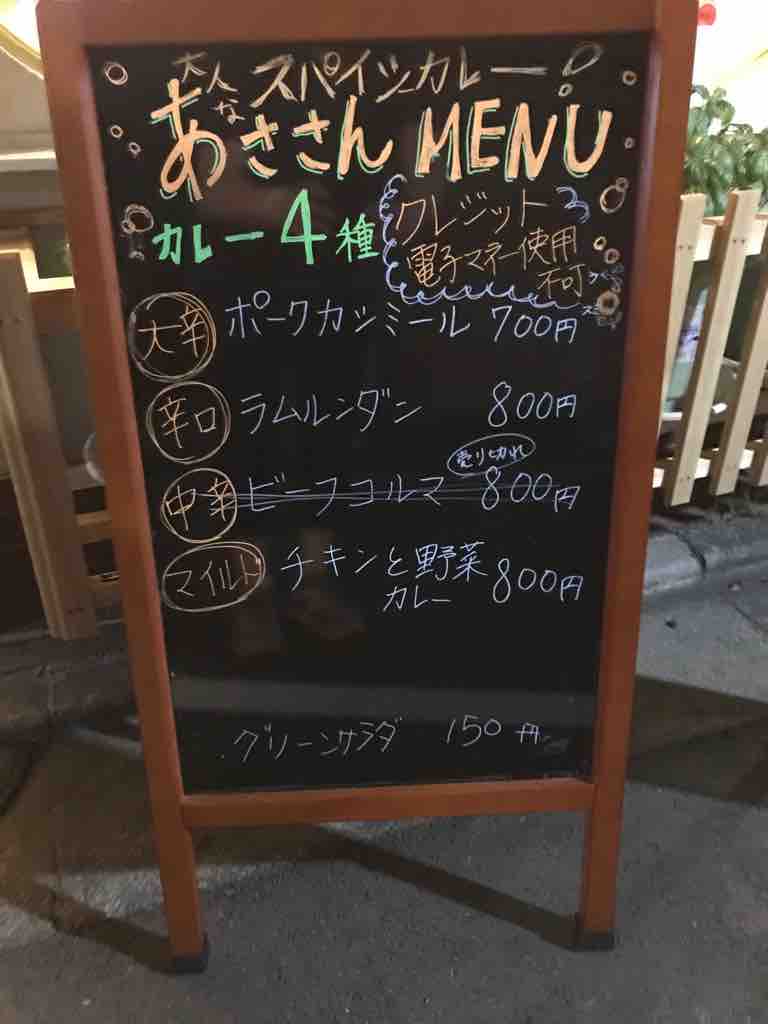 大人な スパイシカレー!
あささん MENU
カレー4種
クレジット
電子マネー使用
不可
大辛 ポークカツミール 700円
辛口 ラムルンダン 800円
売り切れ
中辛 ビーフコルマ 800円
マイルド チキンと野菜
カレー 800円
グリーンサラダ 150円